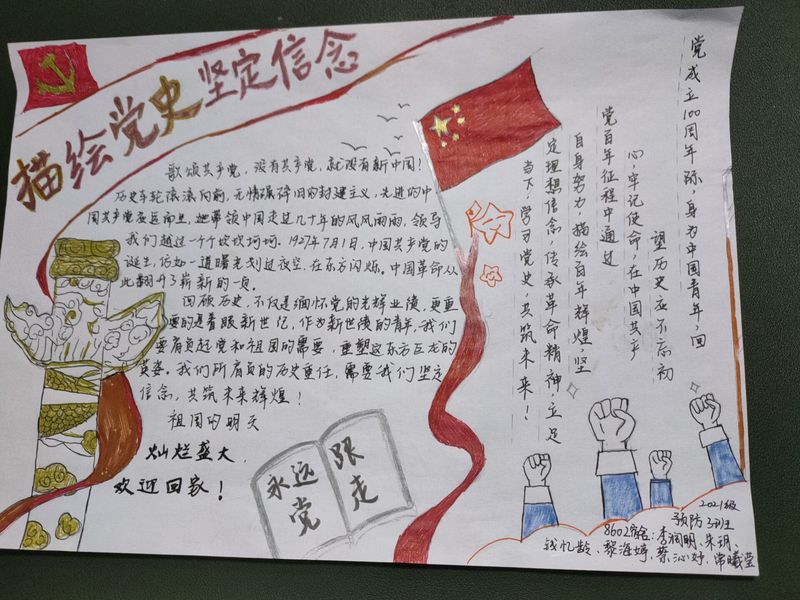 描绘党史坚定信念
歌颂共产党，没有共产党，就没有新中国！
历史车轮滚滚向前，无情碾碎旧的封建主义，先进的中
国共产党应运而生，她带领中国走过几十年的风风雨雨，领导
我们越过一个个坎坎坷坷。1927年7月1日，中国共产党的
诞生，仿如一道曙光划过夜空，在东方闪烁。中国革命从
此翻开了崭新的一页。
回顾历史，不仅是缅怀党的光辉业绩，更重
要的是着眼新世纪，作为新世纪的青年，我们
要肩负起党和祖国的需要，重塑这东方巨龙的
英姿。我们所肩负的历史重任，需要我们坚定
信念，共筑未来辉煌！
祖国的明天
灿烂盛大，
欢迎回家！
党成立100周年际，身为中国青年，回
望历史应不忘初
心，牢记使命，在中国共产
党百年征程中通过
自身努力，描绘百年辉煌坚
定理想信念，传承革命精神，立足
当下，学习党史，共筑未来！
永远跟
党走
2021级
预防3班
8602宿舍：李润明、朱玥、
钱忆龄、黎海婷、蔡沁妤、常曦莹